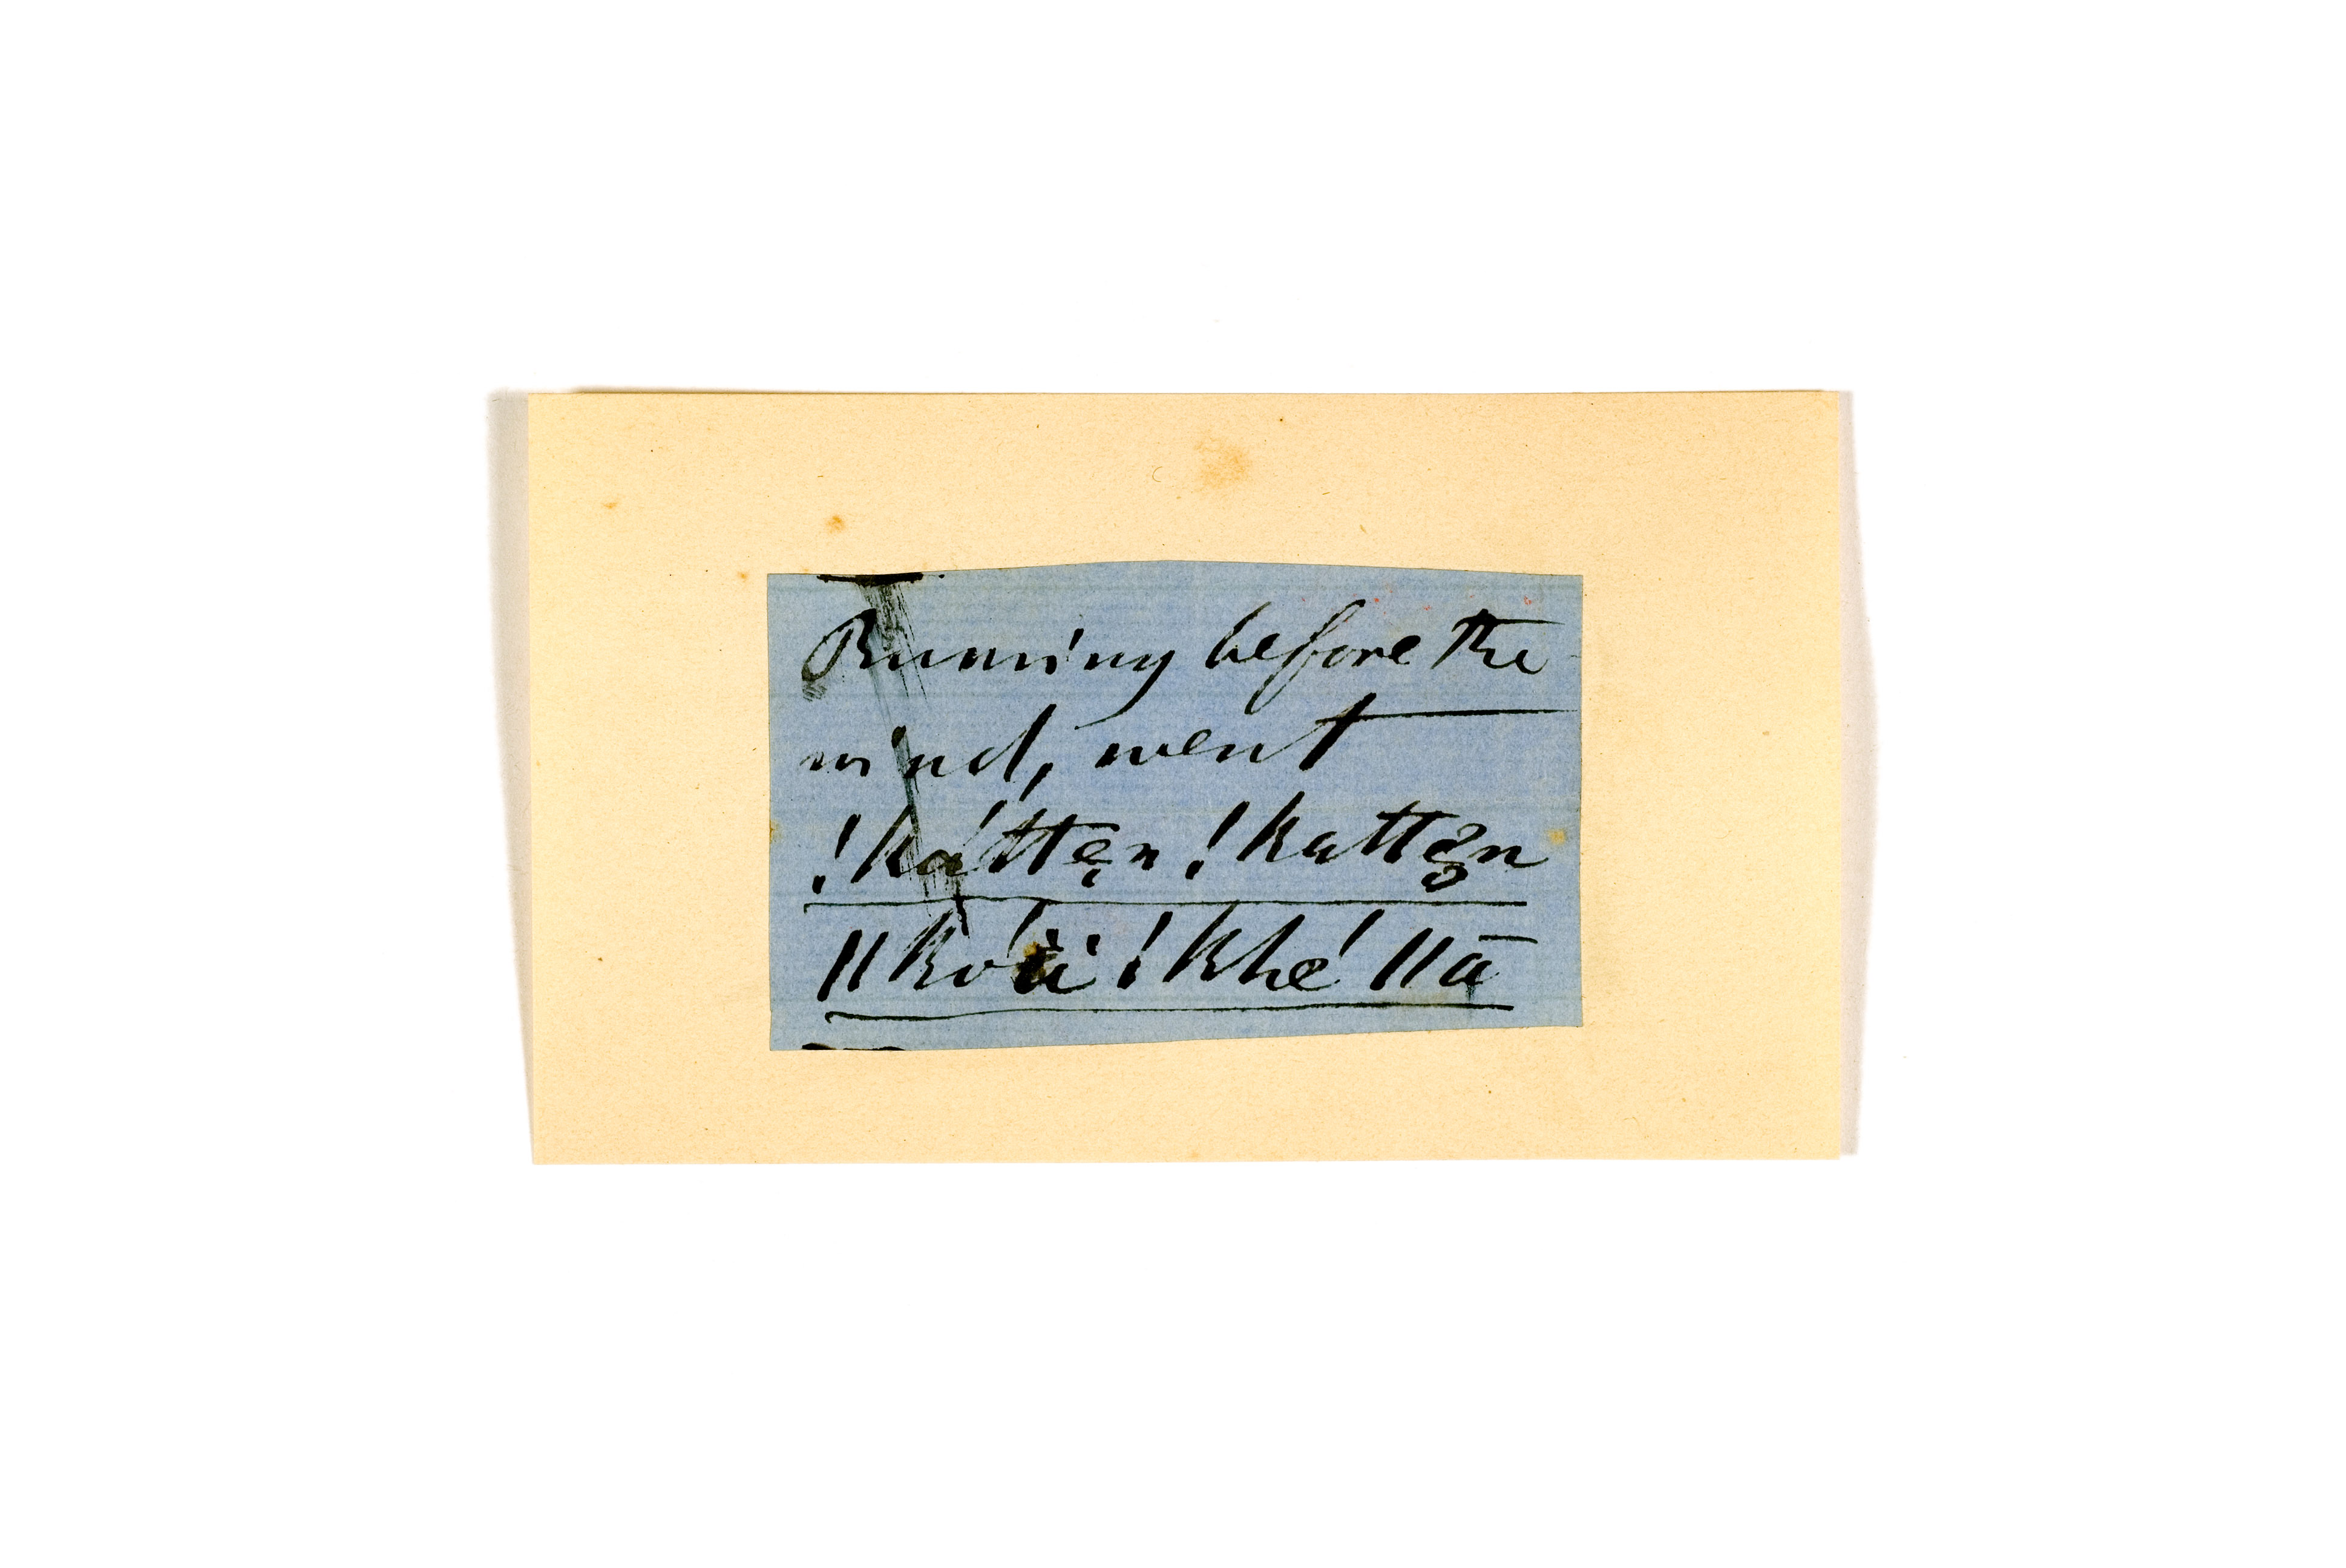 Running before the
wind, went
!kátten̥ !kattĕ̥n
ǁkóä !khé ǁā